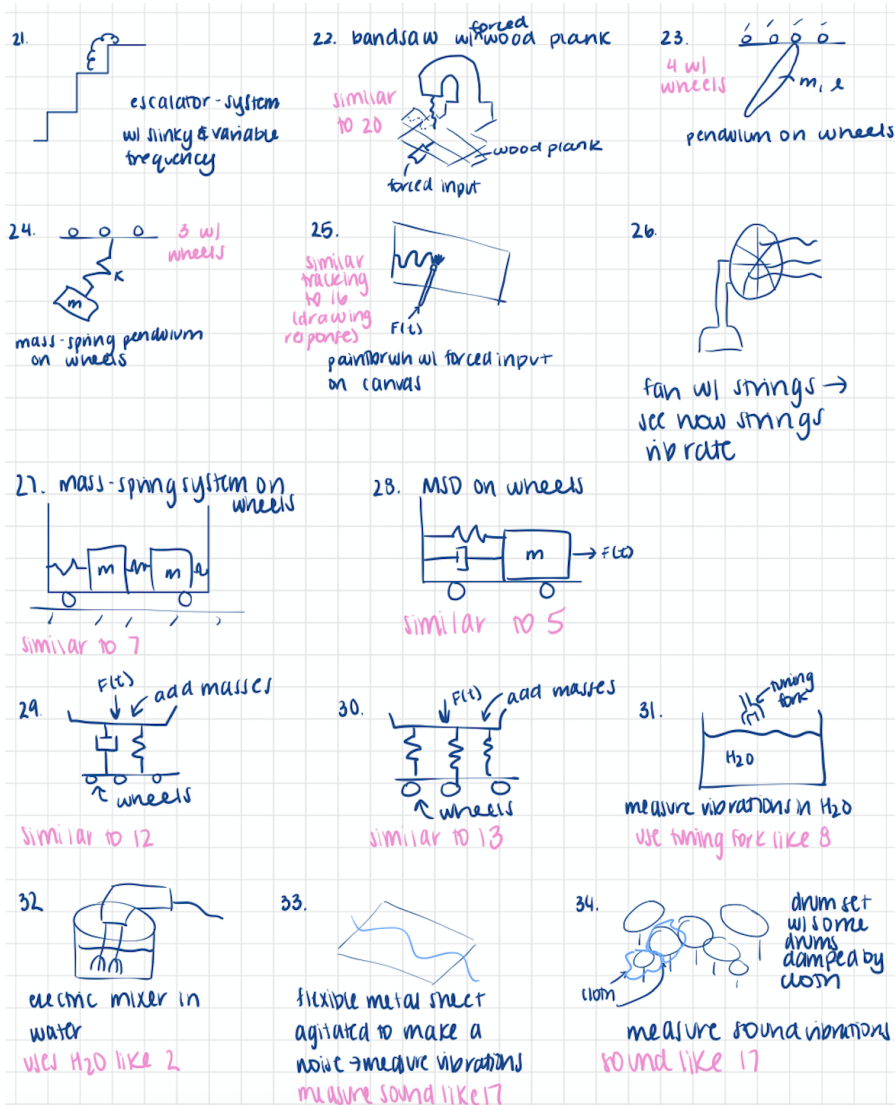 21.
escalator-system
w/ slinky & variable
frequency
22. bandsaw w/ forced wood plank
similar
to 20
wood plank
forced input
23.
4 w/
wheels
m, l
pendulum on wheels
24.
3 w/
wheels
K
m
mass-spring pendulum
on wheels
25.
similar
tracking
to 16
(drawing
reponse)
F(t)
paintbrush w/ forced input
on canvas
26.
fan w/ strings →
see how strings
vibrate
27. mass-spring system on
wheels
m m
similar to 7
28. MSD on wheels
m → F(t)
similar to 5
29.
F(t)
add masses
wheels
similar to 12
30.
F(t) add masses
wheels
similar to 13
31.
tuning
fork
H2O
measure vibrations in H2O
use tuning fork like 8
32
electric mixer in
water
uses H2O like 2
33.
flexible metal sheet
agitated to make a
noise → measure vibrations
measure sound like 17
34.
drum set
w/ some
drums
damped by
cloth
cloth
measure sound vibrations
sound like 17